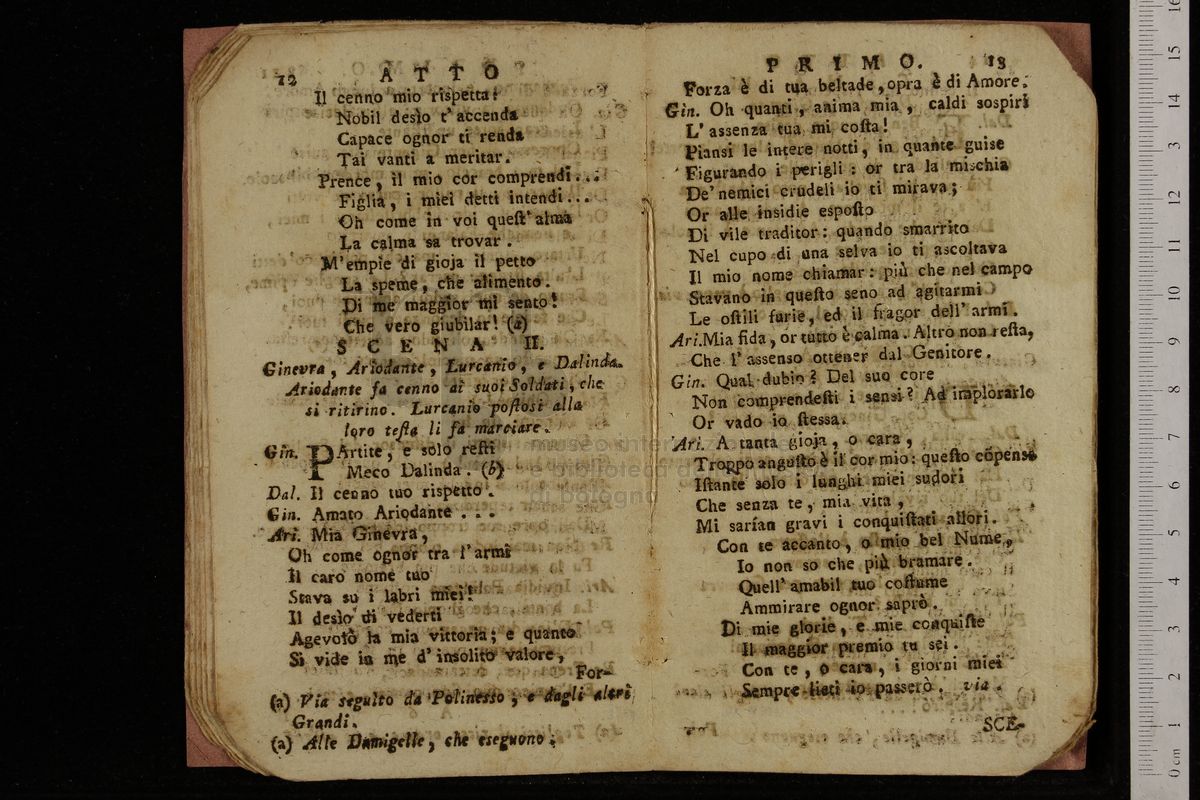 12 ATTO
Il cenno mio rispetta!
Nobil desìo t'accenda
Capace ognor ti renda
Tai vanti a meritar.
Prence, il mio cor comprendi...
Figlia, i miei detti intendi...
Oh come in voi quest'alma
La calma sa trovar.
M'empie di gioja il petto
La speme, che alimento.
Di me maggior mi sento!
Che vero giubilar! (a)
SCENA II.
Ginevra, Ariodante, Lurcanio, e Dalinda.
Ariodante fa cenno ai suoi Soldati, che
si ritirino. Lurcanio postosi alla
loro testa li fa marciare.
Gin. PArtite, e solo resti
Meco Dalinda. (b)
Dal. Il cenno tuo rispetto.
Gin. Amato Ariodante...
Ari. Mia Ginevra,
Oh come ognor tra l'armi
Il caro nome tuo
Stava su i labri miei!
Il desìo di vederti
Agevolò la mia vittoria; e quanto
Si vide in me d'insolito valore,
For-
(a) Via seguito da Polinesso, e dagli altri
Grandi.
(a) Alle Damigelle, che eseguono.
PRIMO. 13
Forza è di tua beltade, opra è di Amore.
Gin. Oh quanti, anima mia, caldi sospiri
L'assenza tua mi costa!
Piansi le intere notti, in quante guise
Figurando i perigli: or tra la mischia
De'nemici crudeli io ti mirava;
Or alle insidie esposto
Di vile traditor: quando smarrito
Nel cupo di una selva io ti ascoltava
Il mio nome chiamar: più che nel campo
Stavano in questo seno ad agitarmi
Le ostili furie, ed il fragor dell'armi.
Ari. Mia fida, or tutto è calma. Altro non resta,
Che l'assenso ottener dal Genitore.
Gin. Qual dubio? Del suo core
Non comprendesti i sensi? Ad implorarlo
Or vado io stessa.
Ari. A tanta gioja, o cara,
Troppo angusto è il cor mio: questo cõpensi
Istante solo i lunghi miei sudori
Che senza te, mia vita,
Mi sarìan gravi i conquistati allori.
Con te accanto, o mio bel Nume,
Io non so che più bramare.
Quell'amabil tuo costume
Ammirare ognor saprò.
Di mie glorie, e mie conquiste
Il maggior premio tu sei.
Con te, o cara, i giorni miei
Sempre lieti io passerò. via.
SCE-